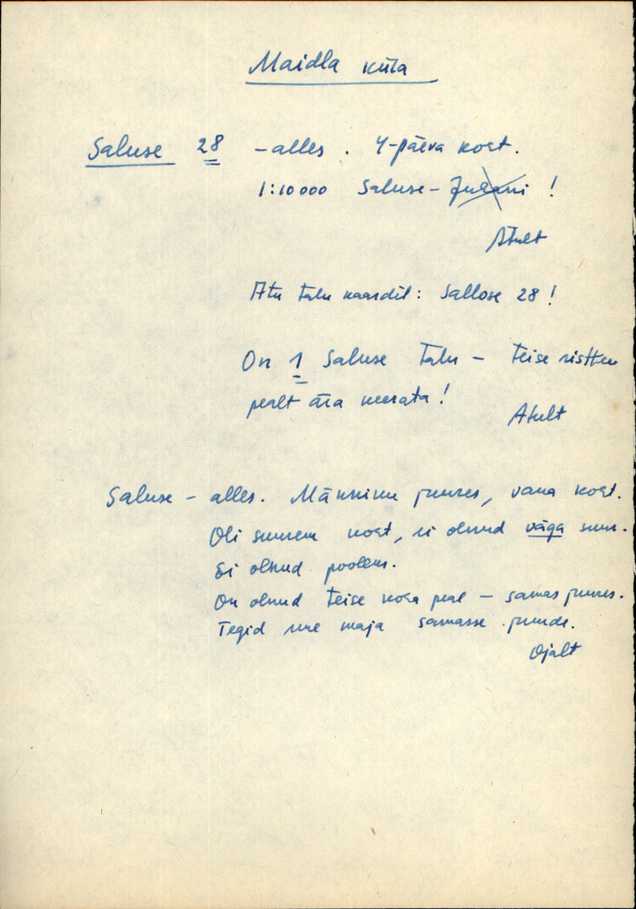 Maidla küla
Saluse 28 - alles. 4-päeva koet.
1:10000 Saluse- !
Atult
Atu talu kaardil: Sallose 28!
On 1 Saluse talu - teise
pealt ära! 
Atult
Saluse - alles. Männimu juures, vana koet.
Oli suurem koet, ei olnud väga suur.
Ei olnud poolem.
On olnud teise koha peal - samas juures.
Tegid uue maja samasse juurde.
Ojalt